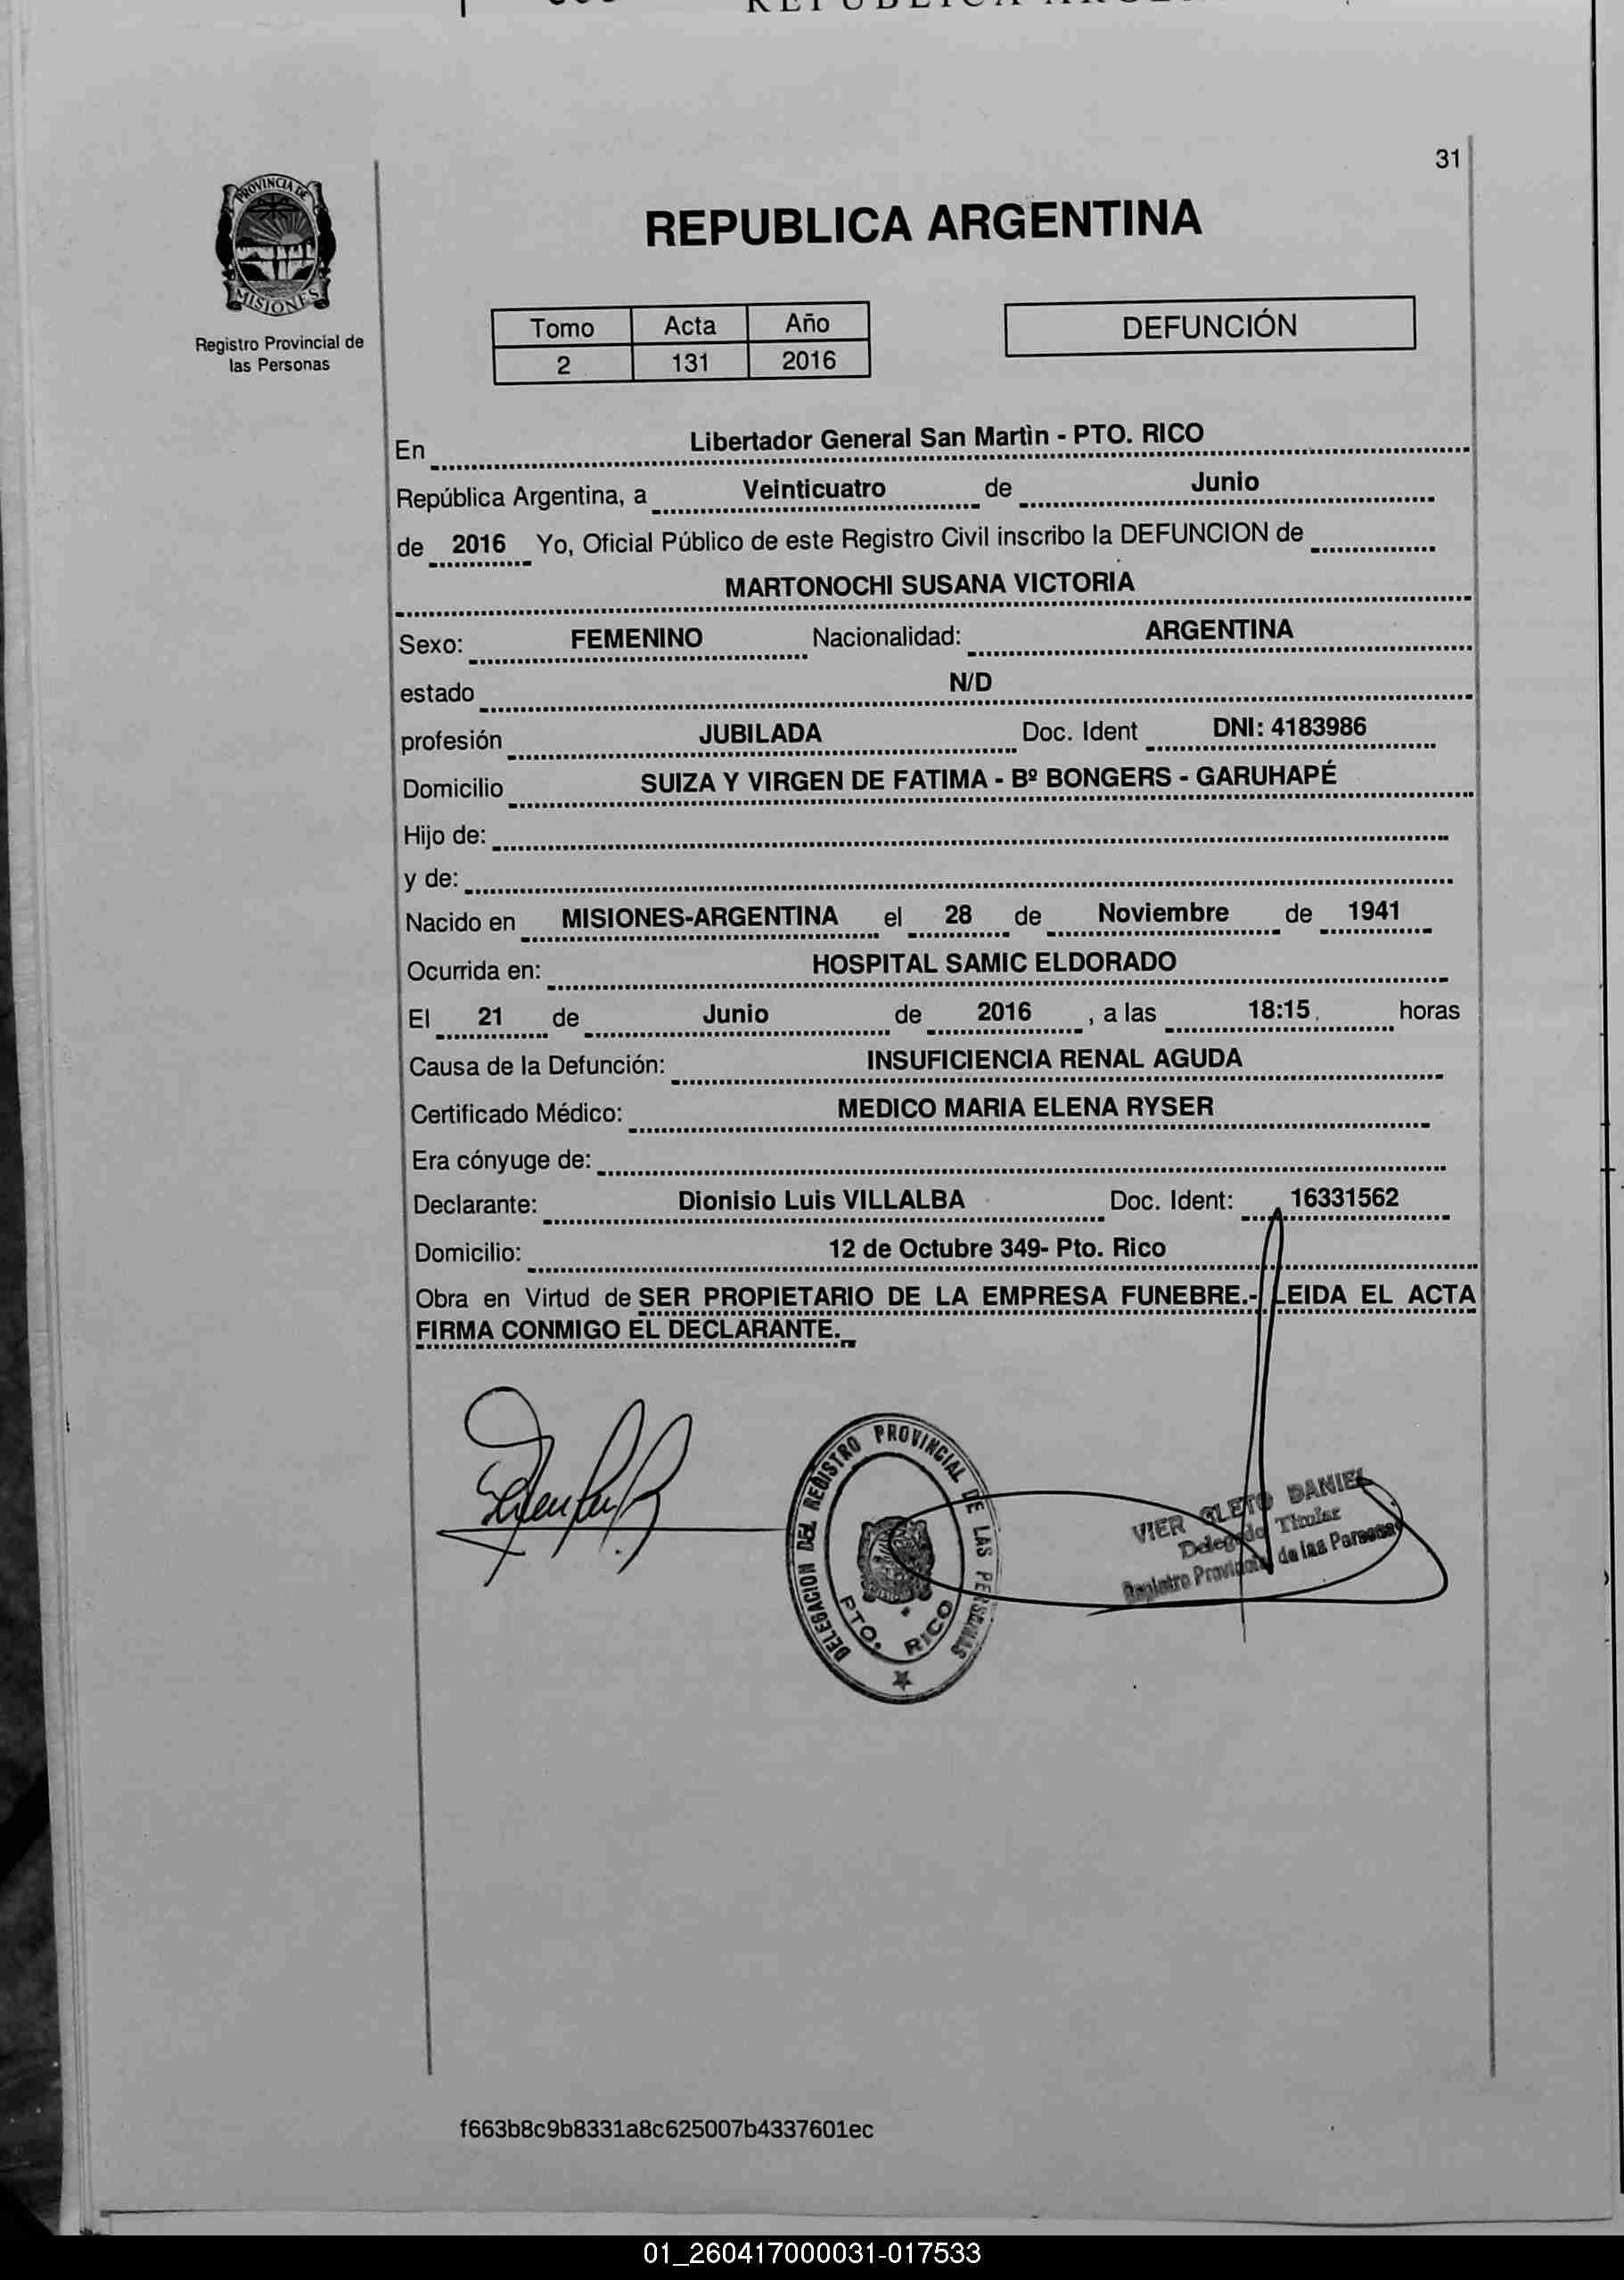 31
PROVINCIA DE
MISIONES
Registro Provincial de
las Personas
REPUBLICA ARGENTINA
Tomo Acta Año
2 131 2016
DEFUNCIÓN
En Libertador General San Martìn - PTO. RICO
República Argentina, a Veinticuatro de Junio
de 2016 Yo, Oficial Público de este Registro Civil inscribo la DEFUNCION de
MARTONOCHI SUSANA VICTORIA
Sexo: FEMENINO Nacionalidad: ARGENTINA
estado N/D
profesión JUBILADA Doc. Ident DNI: 4183986
Domicilio SUIZA Y VIRGEN DE FATIMA - Bº BONGERS - GARUHAPÉ
Hijo de:
y de:
Nacido en MISIONES-ARGENTINA el 28 de Noviembre de 1941
Ocurrida en: HOSPITAL SAMIC ELDORADO
El 21 de Junio de 2016 , a las 18:15. horas
Causa de la Defunción: INSUFICIENCIA RENAL AGUDA
Certificado Médico: MEDICO MARIA ELENA RYSER
Era cónyuge de:
Declarante: Dionisio Luis VILLALBA Doc. Ident: 16331562
Domicilio: 12 de Octubre 349- Pto. Rico
Obra en Virtud de SER PROPIETARIO DE LA EMPRESA FUNEBRE.- LEIDA EL ACTA
FIRMA CONMIGO EL DECLARANTE.
DELEGACION DEL REGISTRO PROVINCIAL DE LAS PERSONAS
PTO. RICO
VIER CLETO DANIEL
Delegado Titular
Registro Provincial de las Personas
f663b8c9b8331a8c625007b4337601ec
01_260417000031-017533